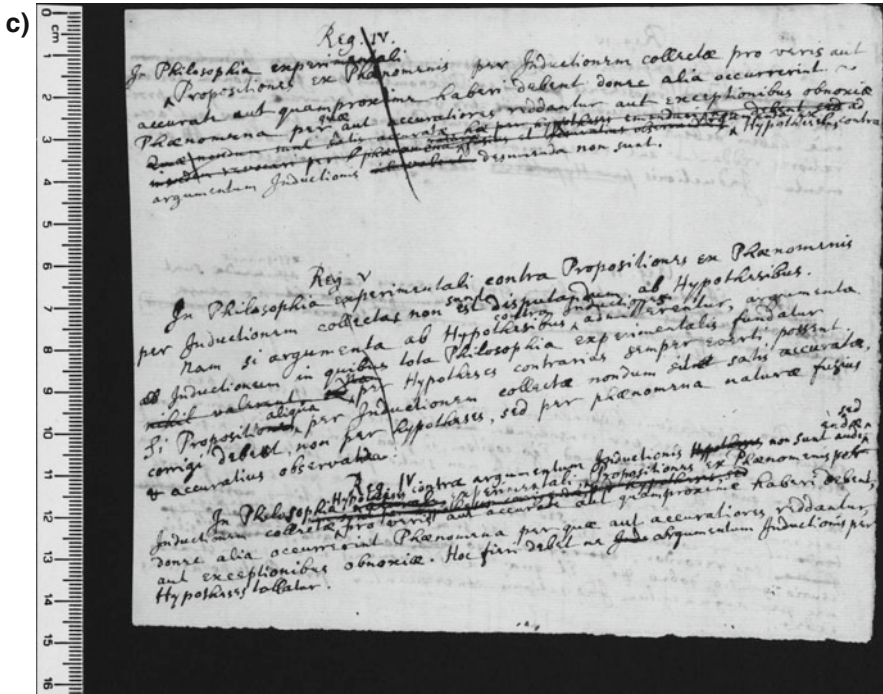 c)
0
cm
1
2
3
4
5
6
7
8
9
10
11
12
13
14
15
16
Reg. IV.
In Philosophia experimentali
Propositiones ex Phænomenis per Inductionem collectæ pro veris aut
accurate aut quamproxime haberi debent donec alia occurrerint
Phænomena per quæ aut accuratiores reddantur aut exceptionibus obnoxiæ
Hypotheses contra
argumentum Inductionis desumenda non sunt.
Reg. V
In Philosophia experimentali contra Propositiones ex Phænomenis
per Inductionem collectas non est disputandum ab Hypothesibus.
Nam si argumenta ab Hypothesibus contra Inductiones admitterentur, argumenta
Inductionum in quibus tota Philosophia experimentalis fundatur
nihil valerent per Hypotheses contrarias semper everti possent.
Si Propositio aliqua per Inductionem collecta nondum sit satis accurata,
corrigi debet, non per hypotheses, sed per phænomena naturæ fusius
& accuratius observanda.
Reg. IV.
Hypotheses contra argumentum Inductionis non sunt audiendæ sed
In Philosophia experimentali Propositiones ex Phænomenis per
Inductionem collectæ pro veris aut accurate aut quamproxime haberi debent,
donec alia occurrerint Phænomena per quæ aut accuratiores reddantur,
aut exceptionibus obnoxiæ. Hoc fieri debet ne argumentum Inductionis per
Hypotheses tollatur.